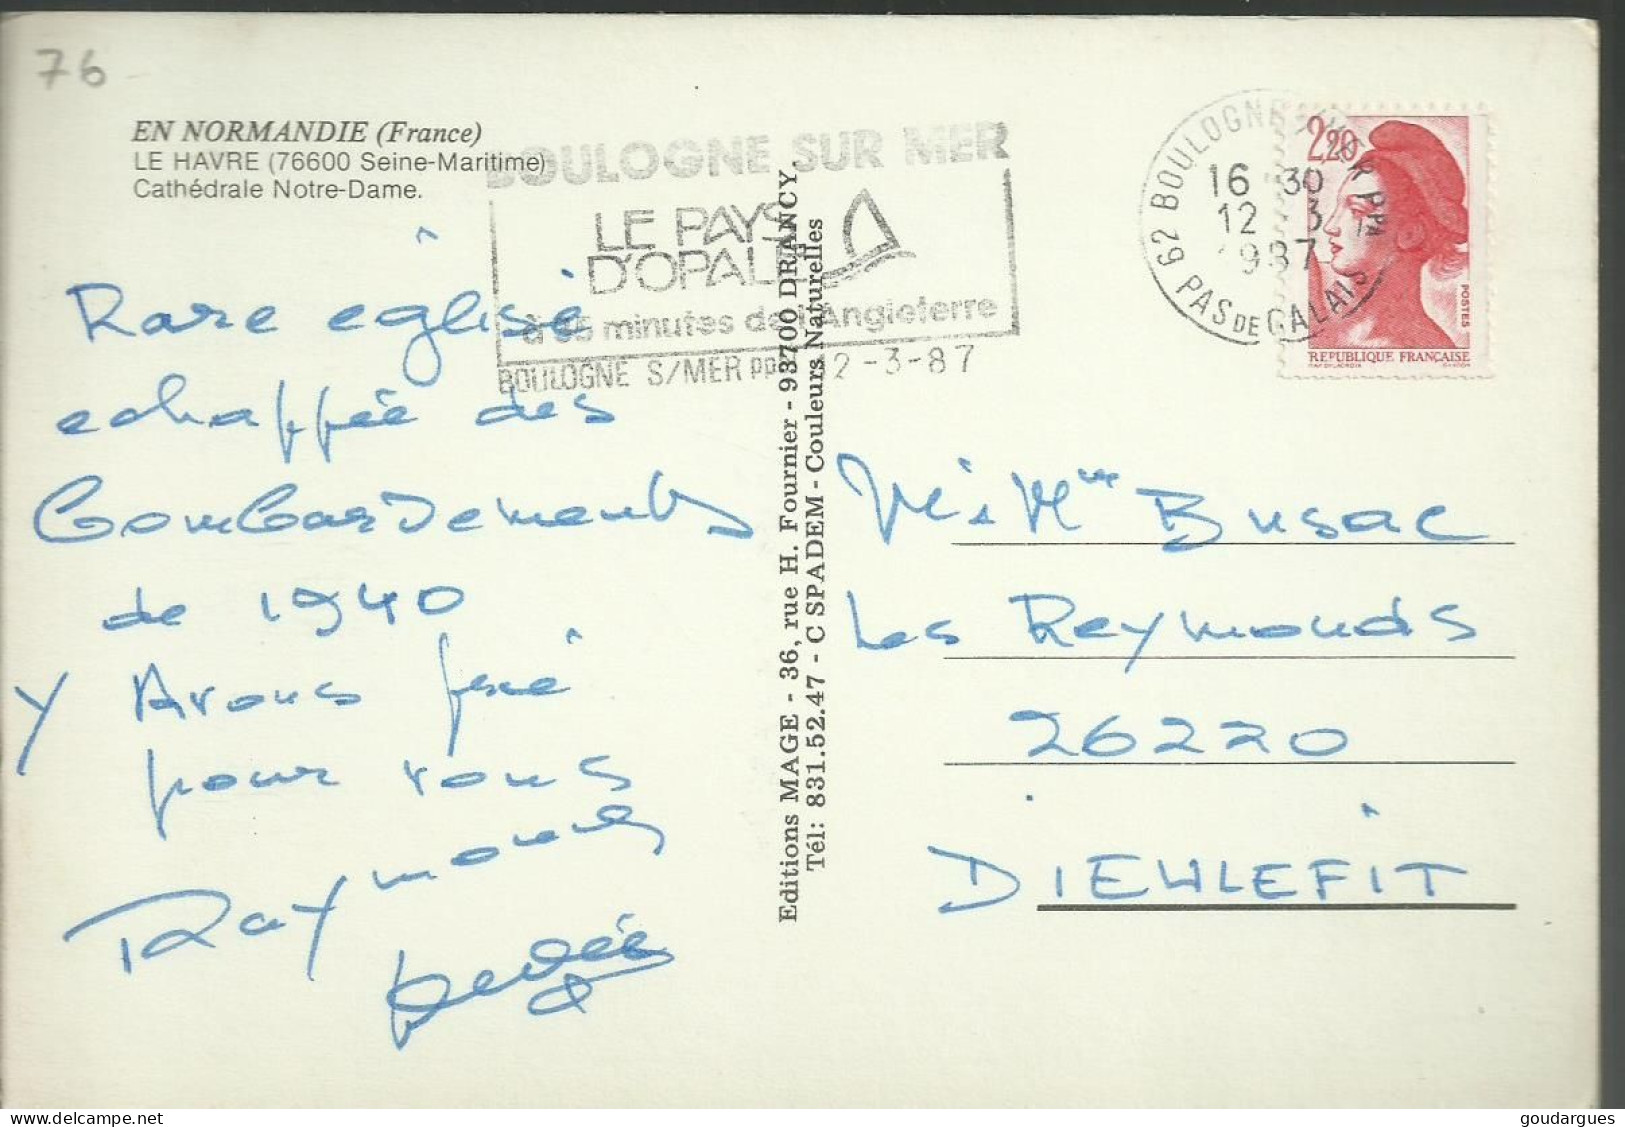 76
EN NORMANDIE (France)
LE HAVRE (76600 Seine-Maritime)
Cathédrale Notre-Dame.
BOULOGNE SUR MER
LE PAYS
D'OPALE
à 35 minutes de l'Angleterre
BOULOGNE S/MER PPAL 12-3-87
62 BOULOGNE S/MER PPAL
16-30
12-3
1987
PAS DE CALAIS
2,20
POSTES
REPUBLIQUE FRANÇAISE
Rare église
echappée des
Bombardements
de 1940
y Avons prié
pour vous
Raymonde
Editions MAGE - 36, rue H. Fournier - 93700 DRANCY.
Tél: 831.52.47 - C SPADEM - Couleurs Naturelles
M & Mme Busac
Les Reymonds
26220
DIEULEFIT
goudargues